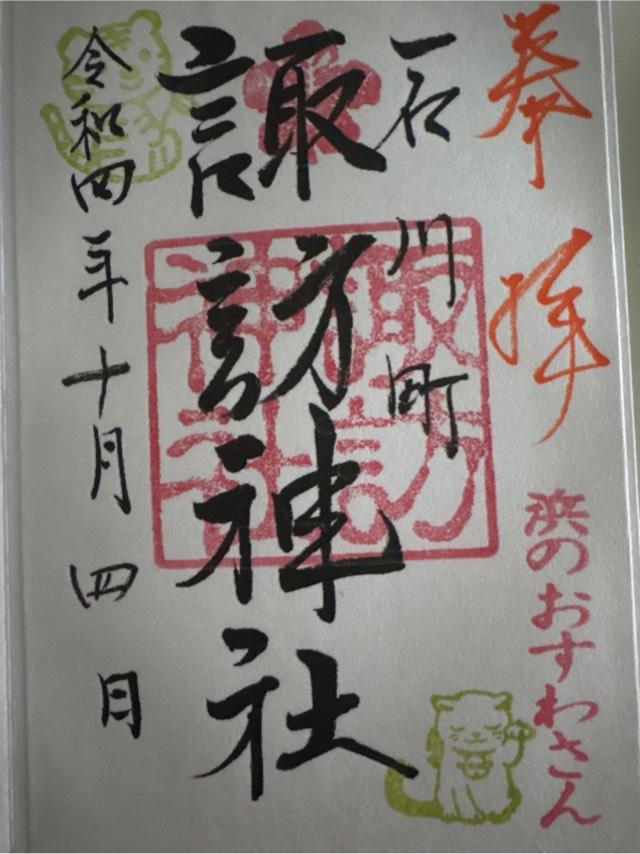 奉拝
浜のおすわさん
石川町
諏訪神社
諏訪神社
令和四年十月四日